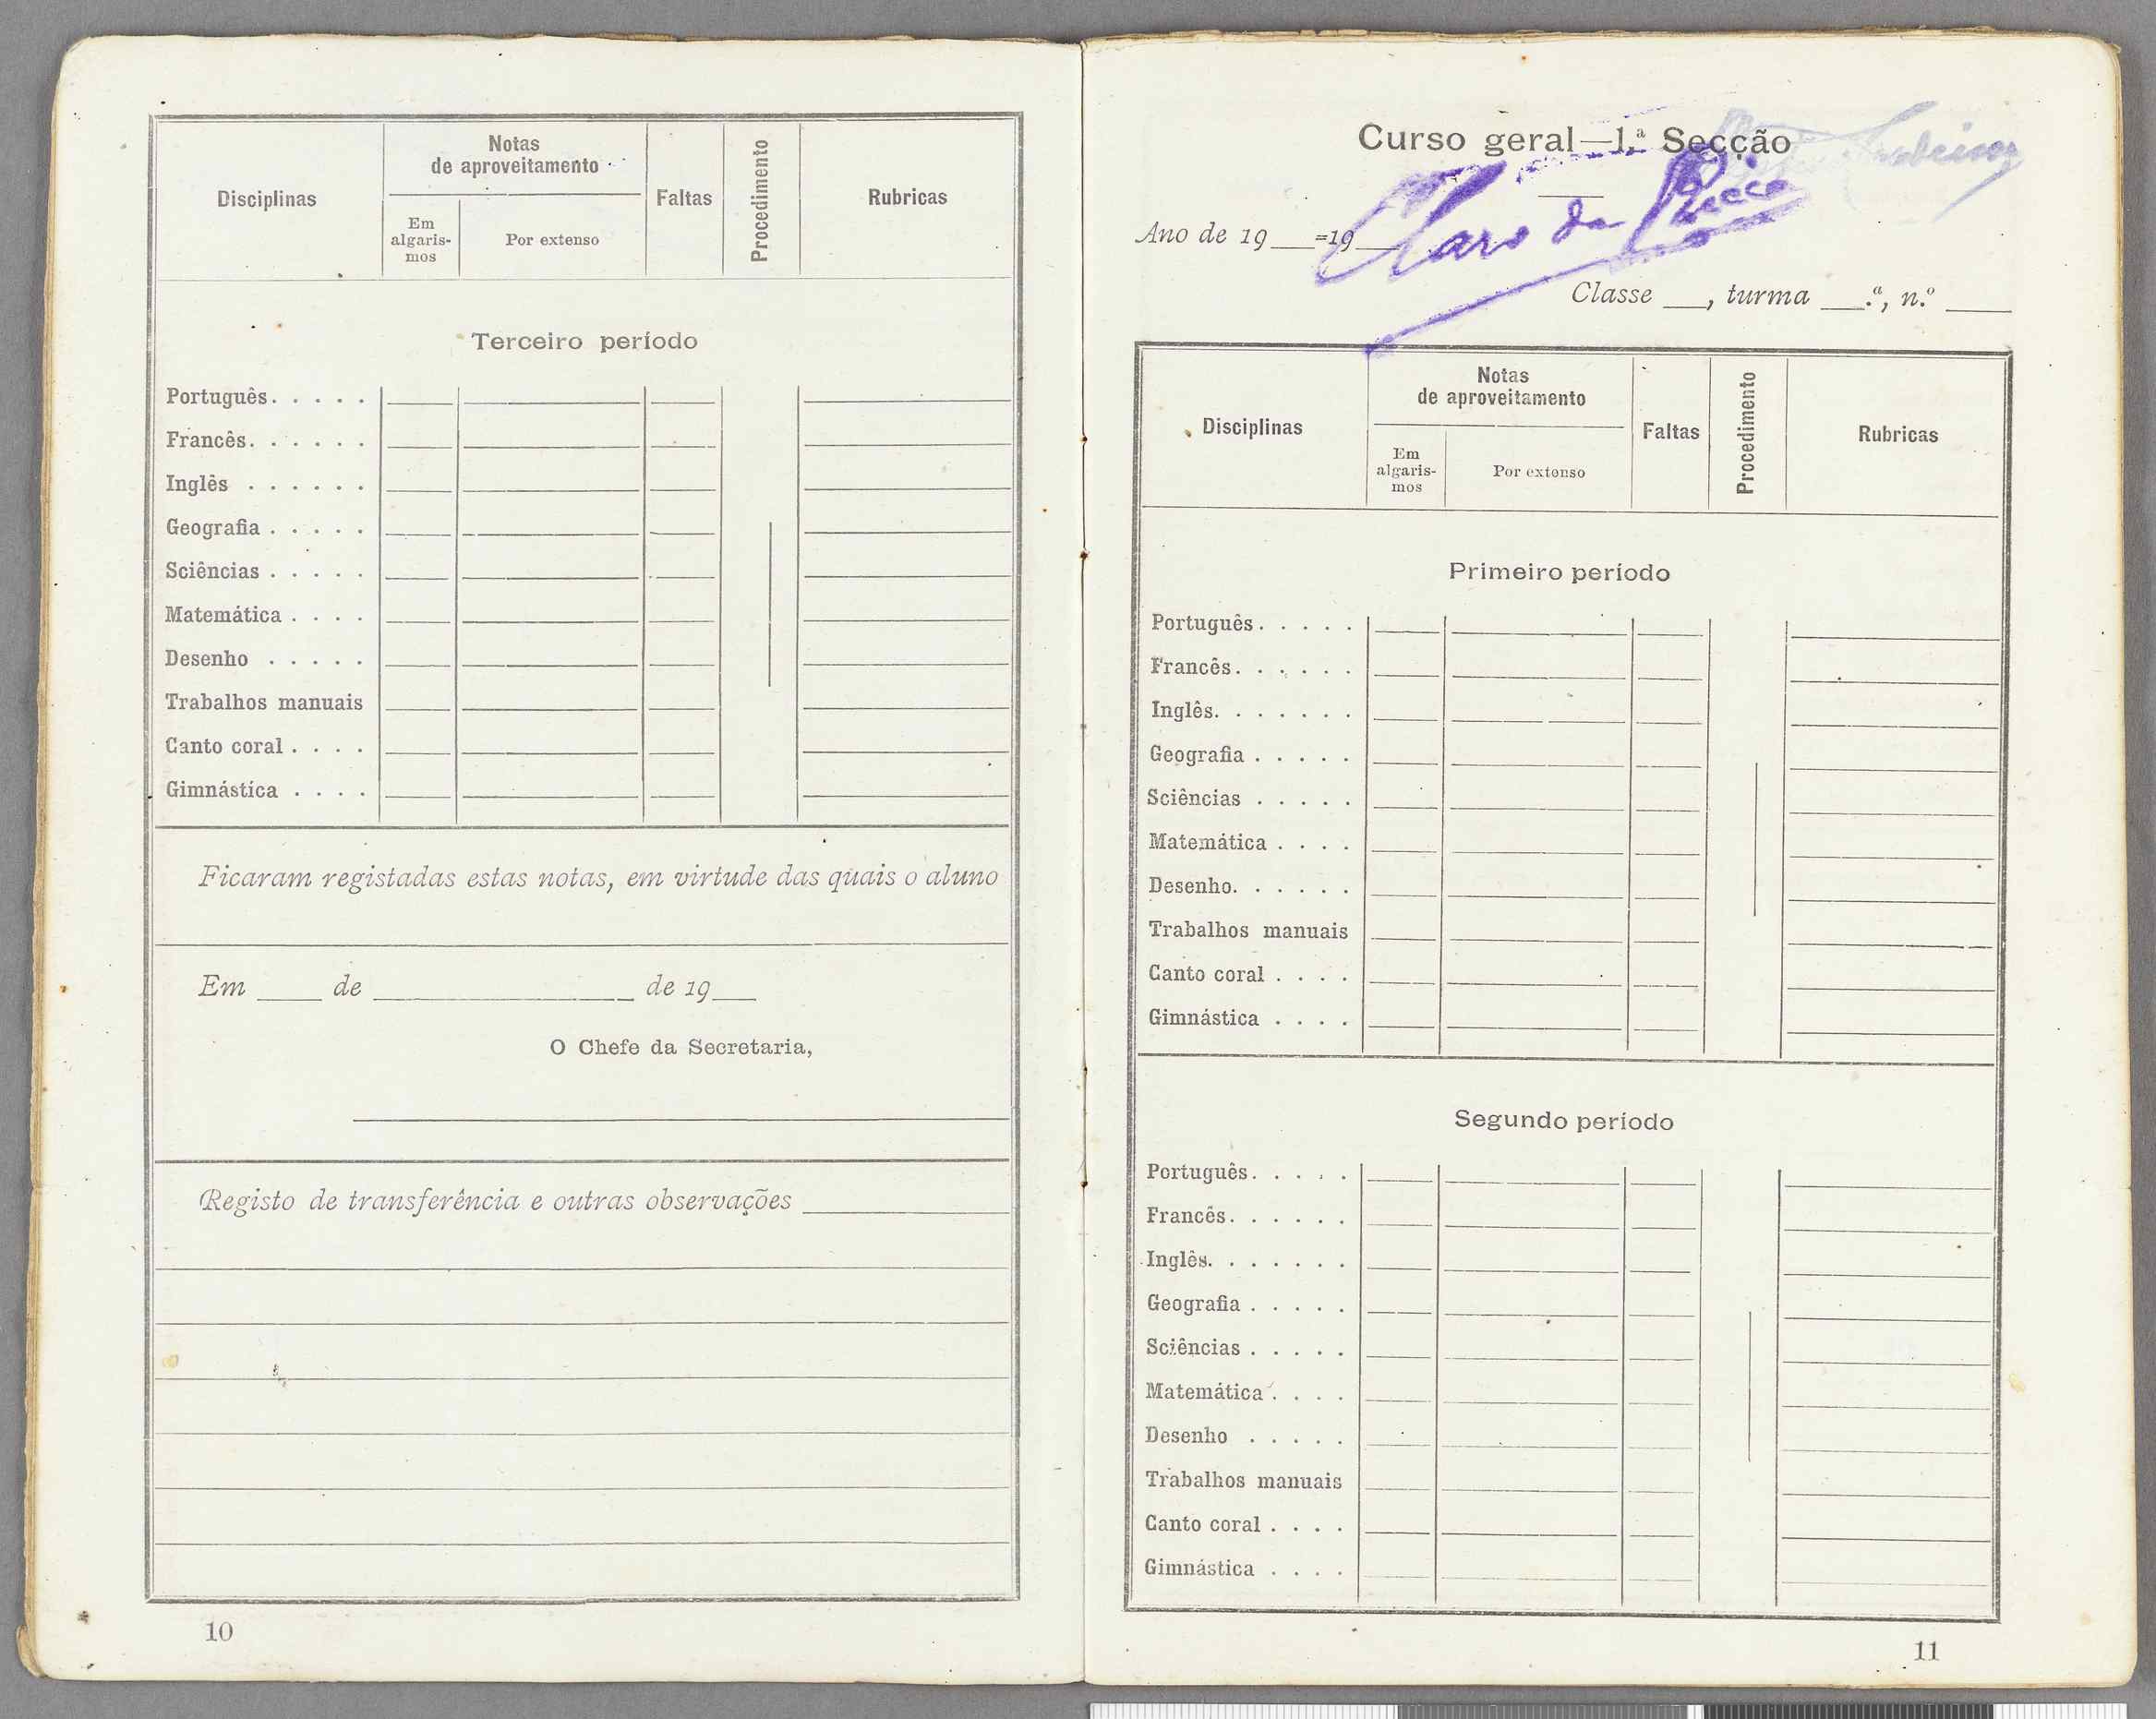 Disciplinas
Notas
de aproveitamento
Em
algaris-
mos
Por extenso
Faltas
Procedimento
Rubricas
Terceiro período
Português. . . . .
Francês. . . . . .
Inglês . . . . . .
Geografia . . . . .
Sciências . . . . .
Matemática . . . .
Desenho . . . . .
Trabalhos manuais
Canto coral . . . .
Gimnástica . . . .
Ficaram registadas estas notas, em virtude das quais o aluno
Em ____ de ____ de 19__
O Chefe da Secretaria,
Registo de transferência e outras observações
10
Curso geral—1.ª Secção
Ano de 19__=19__
Claro da
Classe __, turma __.ª, n.º ___
Disciplinas
Notas
de aproveitamento
Em
algaris-
mos
Por extenso
Faltas
Procedimento
Rubricas
Primeiro período
Português. . . . .
Francês. . . . . .
Inglês. . . . . . .
Geografia . . . . .
Sciências . . . . .
Matemática . . . .
Desenho. . . . . .
Trabalhos manuais
Canto coral . . . .
Gimnástica . . . .
Segundo período
Português. . . . .
Francês. . . . . .
Inglês. . . . . . .
Geografia . . . . .
Sciências . . . . .
Matemática . . . .
Desenho . . . . .
Trabalhos manuais
Canto coral . . . .
Gimnástica . . . .
11